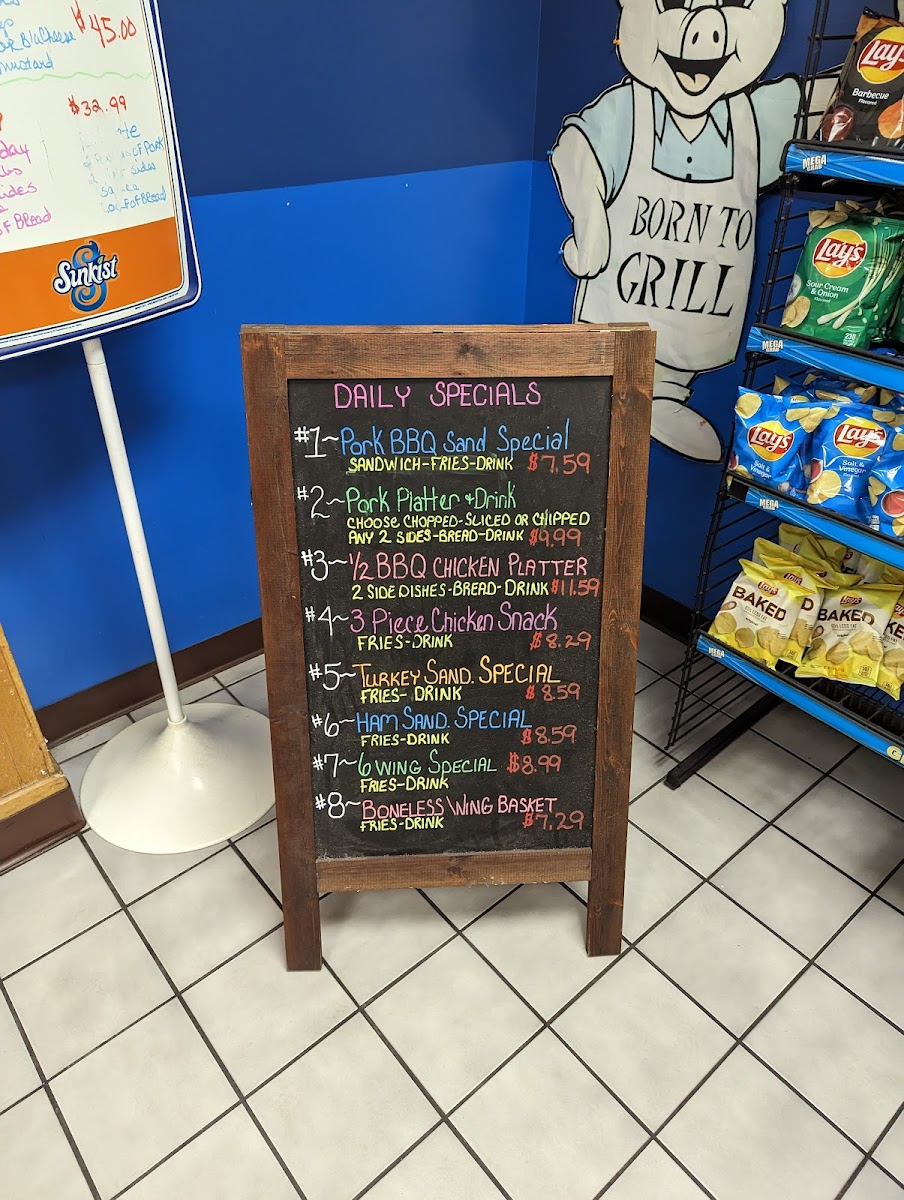 $45.00
Blu Cheese
mustard
$32.99
day
sides
of Pork
sides
Loaf of Bread
of Bread
Sunkist
BORN TO
GRILL
Lay's
Barbecue
Flavored
MEGA
GRAB
Lay's
Sour Cream
& Onion
Flavored
MEGA
GRAB
Lay's
Salt &
Vinegar
Lay's
Salt &
Vinegar
MEGA
GRAB
Lay's
BAKED
Lay's
BAKED
MEGA
GRAB
DAILY SPECIALS
#1~Pork BBQ Sand Special
SANDWICH-FRIES-DRINK $7.59
#2~Pork Platter + Drink
CHOOSE CHOPPED-SLICED OR CHIPPED
ANY 2 SIDES-BREAD-DRINK $9.99
#3~1/2 BBQ CHICKEN PLATTER
2 SIDE DISHES-BREAD-DRINK $11.59
#4~3 Piece Chicken Snack
FRIES-DRINK $8.29
#5~TURKEY SAND. SPECIAL
FRIES-DRINK $8.59
#6~HAM SAND. SPECIAL
FRIES-DRINK $8.59
#7~6 WING SPECIAL $8.99
FRIES-DRINK
#8~BONELESS WING BASKET
FRIES-DRINK $7.29